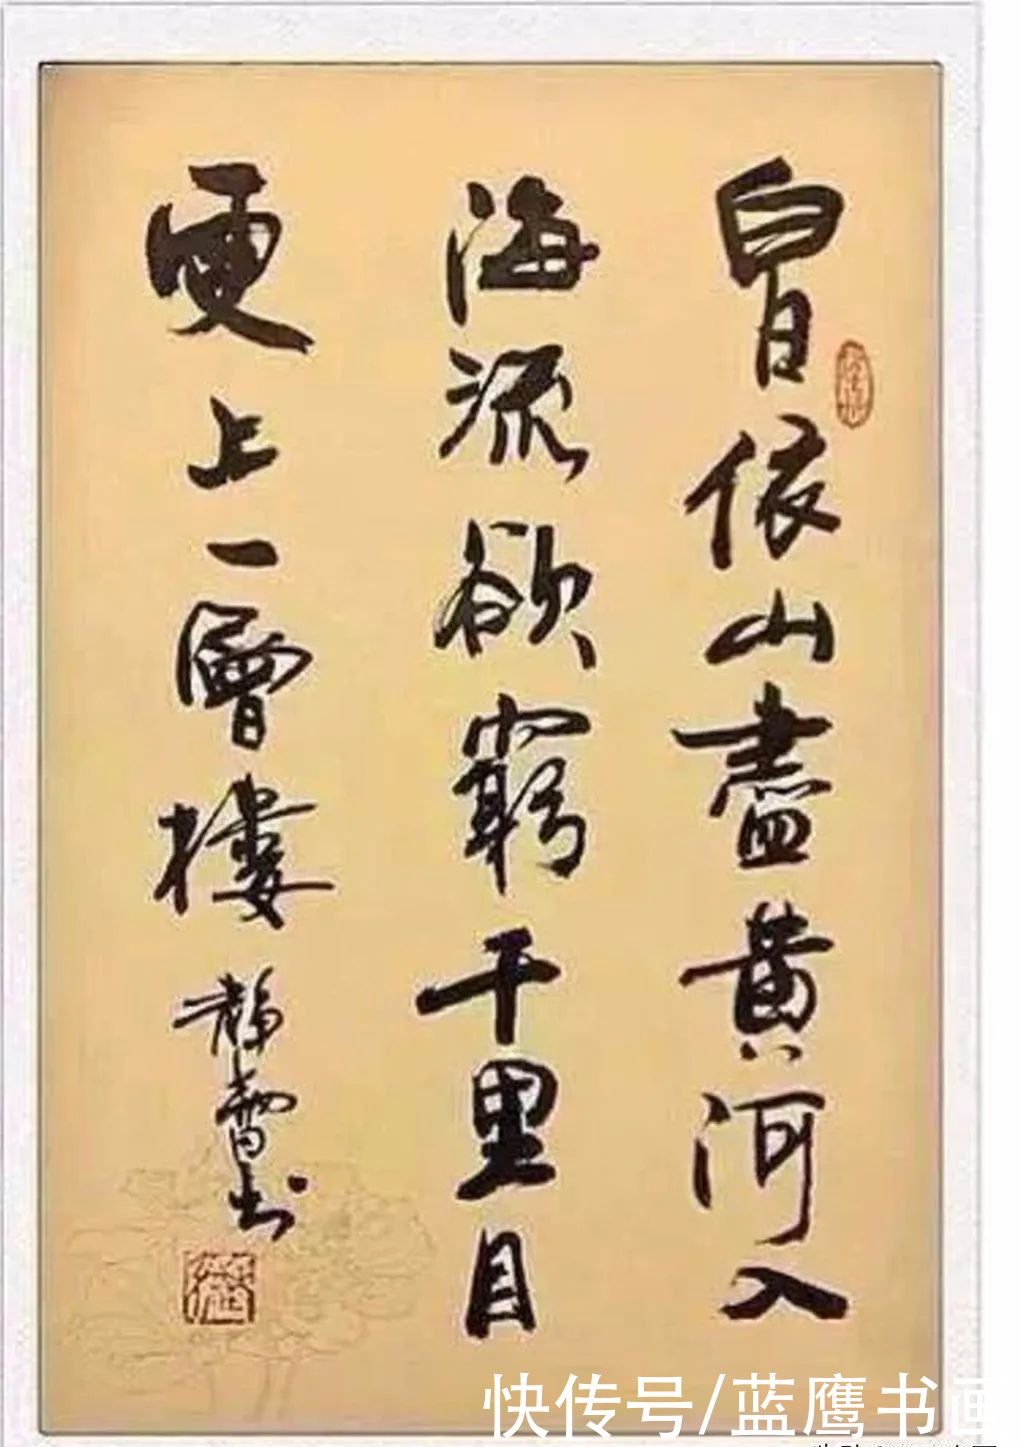 白日依山盡黄河入
海流欲窮千里目
更上一層樓
静書
快传号/蓝鹰书画